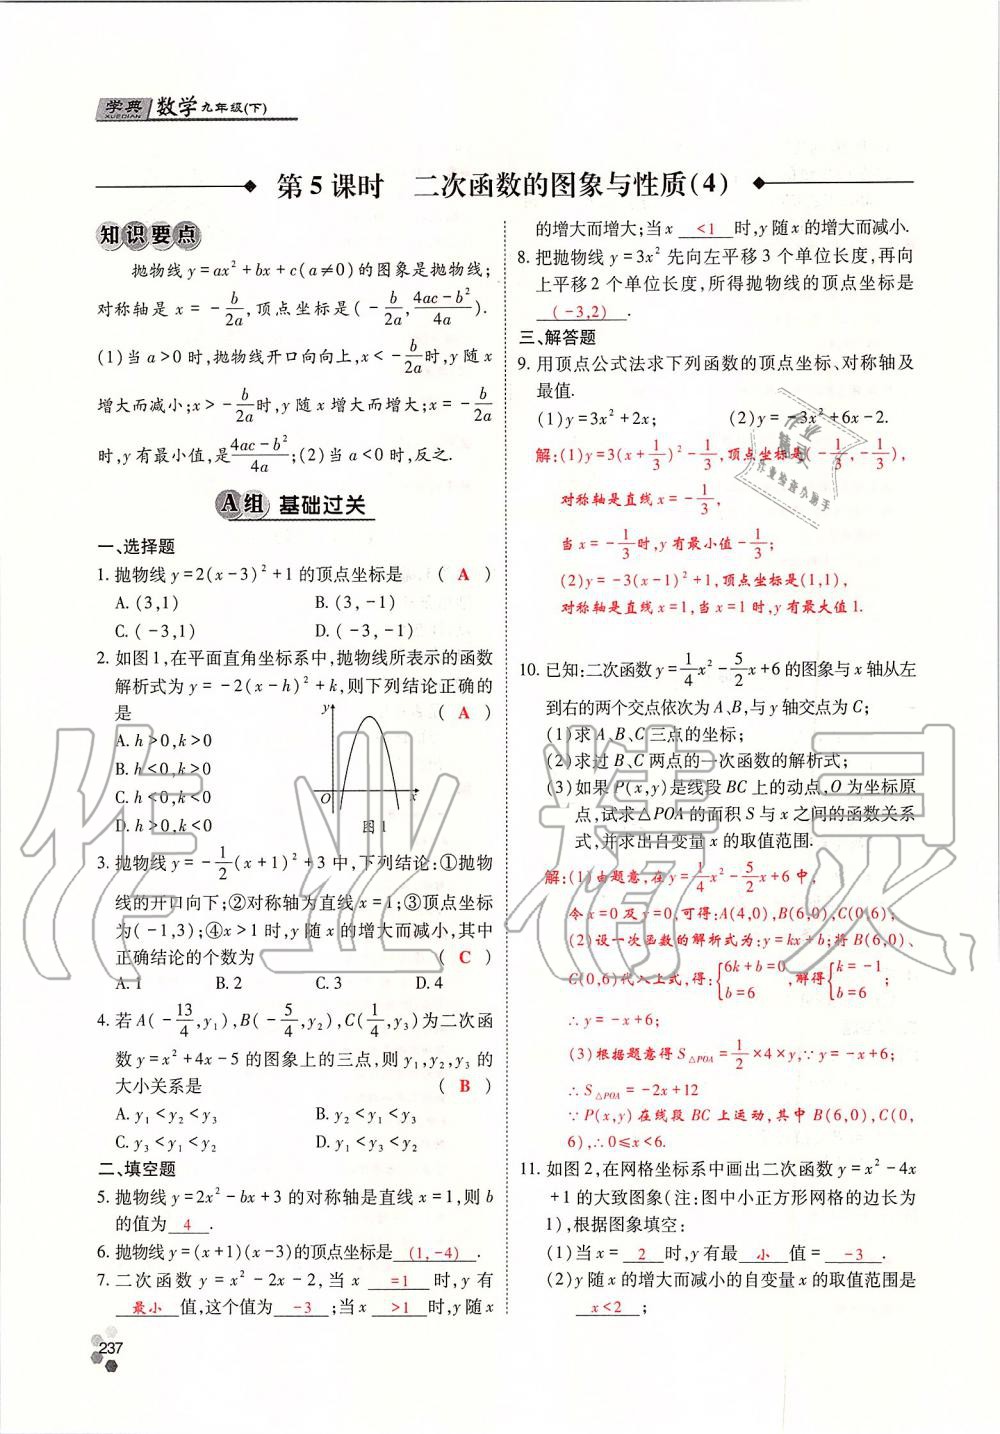 学典 数学 九年级(下)
XUEDIAN
第5课时 二次函数的图象与性质(4)
知识要点
抛物线y=ax²+bx+c(a≠0)的图象是抛物线;
对称轴是x=-b/2a,顶点坐标是(-b/2a,4ac-b²/4a).
(1)当a>0时,抛物线开口向向上,x<-b/2a时,y随x
增大而减小;x>-b/2a时,y随x增大而增大;x=-b/2a
时,y有最小值,是4ac-b²/4a;(2)当a<0时,反之.
A组 基础过关
一、选择题
1. 抛物线y=2(x-3)²+1的顶点坐标是 ( A )
A. (3,1) B. (3,-1)
C. (-3,1) D. (-3,-1)
2. 如图1,在平面直角坐标系中,抛物线所表示的函数
解析式为y=-2(x-h)²+k,则下列结论正确的
是 ( A )
A. h>0,k>0
B. h<0,k>0
C. h<0,k<0
D. h>0,k<0
y
O x
图1
3. 抛物线y=-1/2(x+1)²+3中,下列结论:①抛物
线的开口向下;②对称轴为直线x=1;③顶点坐标
为(-1,3);④x>1时,y随x的增大而减小,其中
正确结论的个数为 ( C )
A. 1 B. 2 C. 3 D. 4
4. 若A(-13/4,y₁),B(-5/4,y₂),C(1/4,y₃)为二次函
数y=x²+4x-5的图象上的三点,则y₁,y₂,y₃的
大小关系是 ( B )
A. y₁<y₂<y₃ B. y₂<y₁<y₃
C. y₃<y₁<y₂ D. y₁<y₃<y₂
二、填空题
5. 抛物线y=2x²-bx+3的对称轴是直线x=1,则b
的值为 4 .
6. 抛物线y=(x+1)(x-3)的顶点坐标是 (1,-4) .
7. 二次函数y=x²-2x-2,当x =1 时,y有
最小 值,这个值为 -3 ;当x >1 时,y随x
的增大而增大;当x <1 时,y随x的增大而减小.
8. 把抛物线y=3x²先向左平移3个单位长度,再向
上平移2个单位长度,所得抛物线的顶点坐标是
(-3,2) .
三、解答题
9. 用顶点公式法求下列函数的顶点坐标、对称轴及
最值.
(1)y=3x²+2x; (2)y=-3x²+6x-2.
解:(1)y=3(x+1/3)²-1/3,顶点坐标是(-1/3,-1/3),
对称轴是直线x=-1/3,
当x=-1/3时,y有最小值-1/3;
(2)y=-3(x-1)²+1,顶点坐标是(1,1),
对称轴是直线x=1,当x=1时,y有最大值1.
10. 已知:二次函数y=1/4x²-5/2x+6的图象与x轴从左
到右的两个交点依次为A、B,与y轴交点为C;
(1)求A、B、C三点的坐标;
(2)求过B、C两点的一次函数的解析式;
(3)如果P(x,y)是线段BC上的动点,O为坐标原
点,试求△POA的面积S与x之间的函数关系
式,并求出自变量x的取值范围.
解:(1)由题意,在y=1/4x²-5/2x+6中,
令x=0及y=0,可得:A(4,0),B(6,0),C(0,6);
(2)设一次函数的解析式为:y=kx+b;将B(6,0)、
C(0,6)代入上式,得:{6k+b=0 b=6,解得{k=-1 b=6;
∴y=-x+6;
(3)根据题意得S△POA=1/2×4×y,∵y=-x+6;
∴S△POA=-2x+12
∵P(x,y)在线段BC上运动,其中B(6,0),C(0,
6),∴0≤x<6.
11. 如图2,在网格坐标系中画出二次函数y=x²-4x
+1的大致图象(注:图中小正方形网格的边长为
1),根据图象填空:
(1)当x= 2 时,y有最 小 值= -3 .
(2)y随x的增大而减小的自变量x的取值范围是
x<2 ;
237
作业精灵